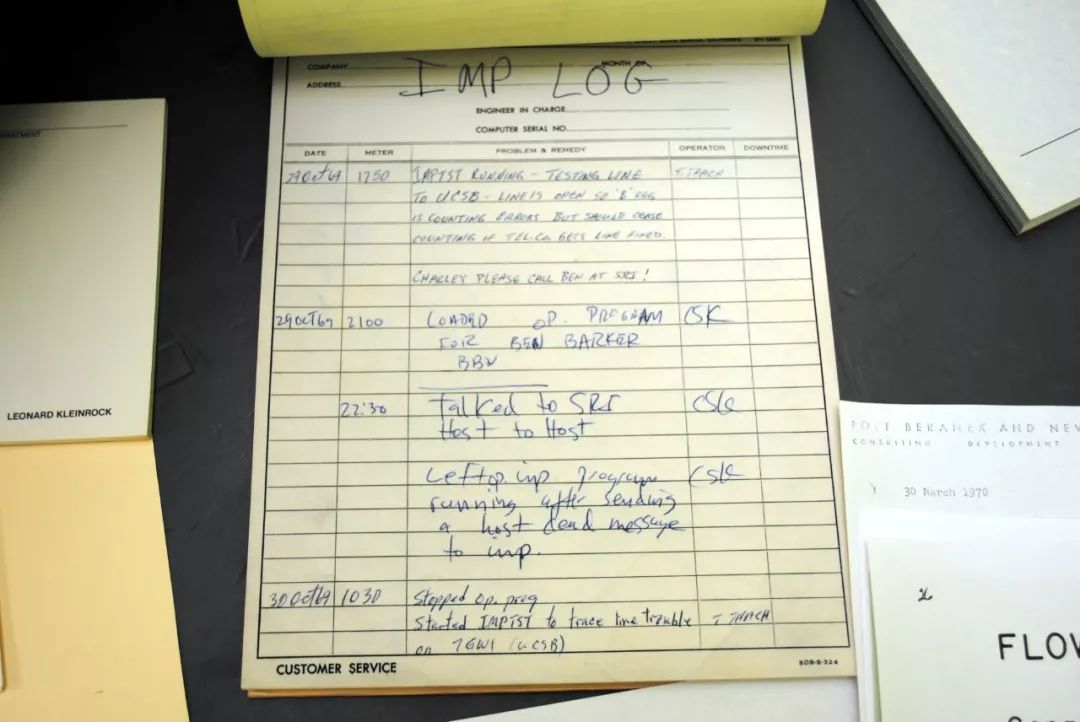 COMPANY MONTH OF
ADDRESS IMP LOG
ENGINEER IN CHARGE
COMPUTER SERIAL NO.
DATE METER PROBLEM & REMEDY OPERATOR DOWNTIME
29Oct69 1750 IMPTST RUNNING - TESTING LINE T. THACH
TO UCSB - LINE IS OPEN SO 'B' REG
IS COUNTING ERRORS BUT SHOULD CEASE
COUNTING IF TEL.Co. GETS LINE FIXED.
CHARLEY PLEASE CALL BEN AT SRI!
29OCT69 2100 LOADED OP. PROGRAM CSK
FOR BEN BARKER
BBN
22:30 Talked to SRI CSK
Host to Host
Left op. imp. program CSK
running after sending
a host dead message
to imp.
30Oct69 1030 Stopped op. prog
Started IMPTST to trace line trouble T THACH
on (UCSB)
CUSTOMER SERVICE SDS-S-324
LEONARD KLEINROCK
BOLT BERANEK AND NEW
CONSULTING DEVELOPMENT
30 March 1970
FLOW